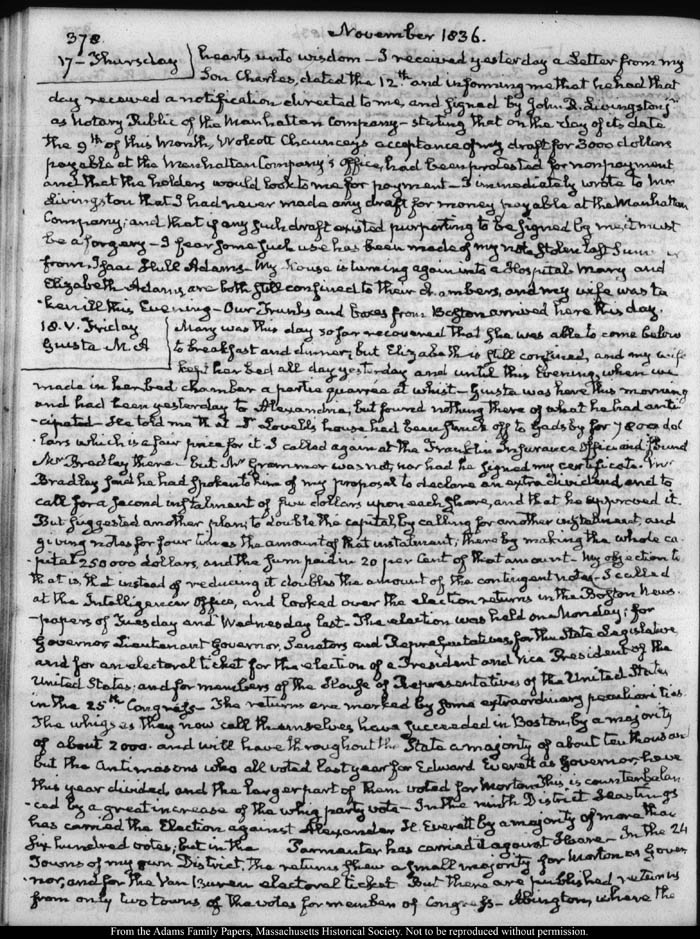 378
November 1836.
17 - Thursday
hearts unto wisdom - I received yesterday a Letter from my
Son Charles, dated the 12th and informing me that he had that
day received a notification directed to me, and signed by John R. Livingston jr
as Notary Public of the Manhattan Company - stating that on the day of its date
the 9th of this Month, Wolcott Chauncey's acceptance of my draft for 3000 dollars
payable at the Manhattan Company's office, had been protested for nonpayment
and that the holders would look to me for payment - I immediately wrote to Mr
Livingston that I had never made any draft for money payable at the Manhattan
Company; and that if any such draft existed purporting to be signed by me, it must
be a forgery - I fear some such use has been made of my note stolen last Sum
from Isaac Hull Adams - My House is turning again into a Hospital. Mary and
Elizabeth Adams are both still confined to their chambers, and my wife was ta-
ken ill this Evening - Our Trunks and boxes from Boston arrived here this day.
18. V. Friday
Giusta M. A
Mary was this day so far recovered that she was able to come below
to breakfast and dinner; but Elizabeth is still confined, and my wife
kept her bed all day yesterday and until this Evening, when we
made in her bed chamber a partie quarrée at whist - Giusta was here this morning
and had been yesterday to Alexandria, but found nothing there of what he had anti-
cipated - He told me that Dr Lovell's house had been struck off to Gadsby for 18000 dol
lars which is a fair price for it. I called again at the Franklin Insurance Office and found
Mr Bradley there - but Mr Grammer was not, nor had he signed my certificate. Mr
Bradley said he had spoken to him of my proposal to declare an extra dividend, and to
call for a second instalment of five dollars upon each share, and that he approved it.
But suggested another plan; to double the capital, by calling for another instalment, and
giving notes for four times the amount of that instalment; thereby making the whole ca-
pital 250000 dollars, and the sum paid in 20 per Cent of that amount - My objection to
that is, that instead of reducing it doubles the amount of the contingent notes - I called
at the Intelligencer Office, and looked over the election returns in the Boston News-
papers of Tuesday and Wednesday last - The election was held on Monday; for
Governor, Lieutenant Governor, Senators and Representatives, for the State Legislative
and for an electoral ticket for the election of a President and Vice President of the
United States; and for members of the House of Representatives of the United States
in the 25th Congress - The returns are marked by some extraordinary peculiarities.
The whigs as they now call themselves have succeeded in Boston, by a majority
of about 2000. and will have throughout the State a majority of about ten thousand
but the Antimasons who all voted last year for Edward Everett as Governor, have
this year divided, and the larger part of them voted for Morton. This is counterbalan-
ced by a great increase of the whig party vote - In the ninth District Hastings
has carried the Election against Alexander H. Everett by a majority of more than
six hundred votes; but in the Parmenter has carried it against Hoare - In the 24
Towns of my own District, the returns shew a small majority for Morton as Gover-
nor, and for the Van Buren electoral ticket But there are published returns
from only two towns of the votes for member of Congress - Abington, where the
From the Adams Family Papers, Massachusetts Historical Society. Not to be reproduced without permission.